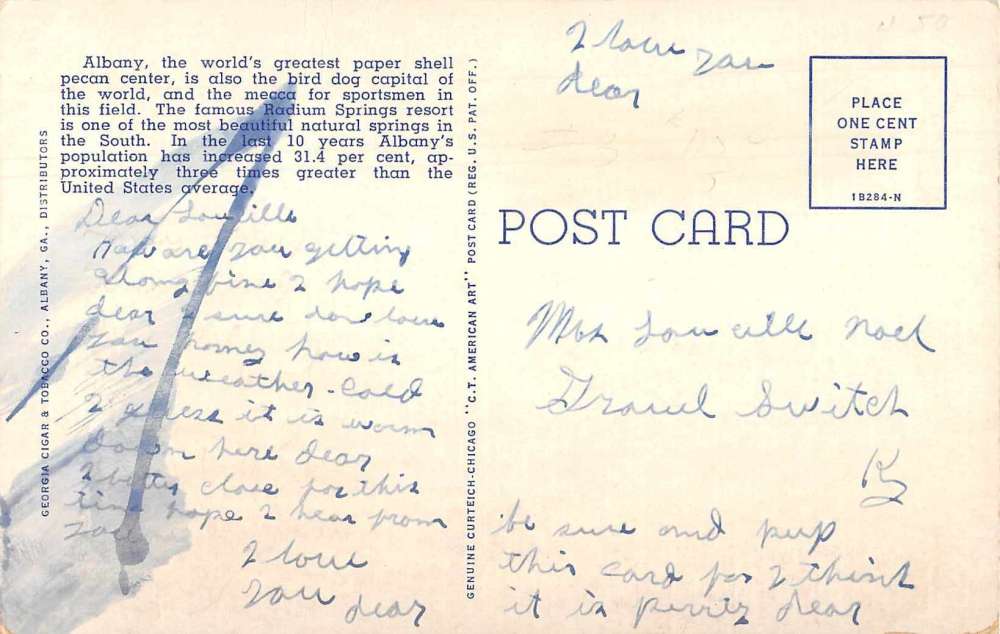 Albany, the world's greatest paper shell
pecan center, is also the bird dog capital of
the world, and the mecca for sportsmen in
this field. The famous Radium Springs resort
is one of the most beautiful natural springs in
the South. In the last 10 years Albany's
population has increased 31.4 per cent, ap-
proximately three times greater than the
United States average.
GEORGIA CIGAR & TOBACCO CO., ALBANY, GA., DISTRIBUTORS
Dear Loucille
How are you getting
along fine I hope
dear I sure do love
you honey how is
the weather - cold
I guess it is worm
down here dear
I better close for this
time hope I hear from
you
I love
you dear
GENUINE CURTEICH-CHICAGO "C.T. AMERICAN ART" POST CARD (REG. U.S. PAT. OFF.)
I love you
dear
PLACE
ONE CENT
STAMP
HERE
1B284-N
POST CARD
Mrs Loucille Noel
Gravel Switch
Ky
be sure and
this card for I think
it is dear